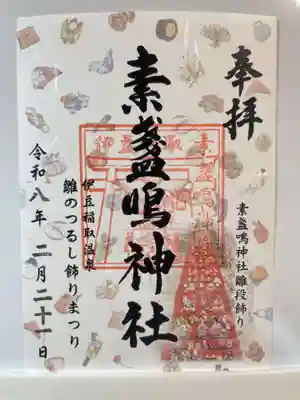 奉拝
素盞鳴神社雛段飾り
素盞鳴神社
伊豆稲取温泉
雛のつるし飾りまつり
令和八年二月二十一日